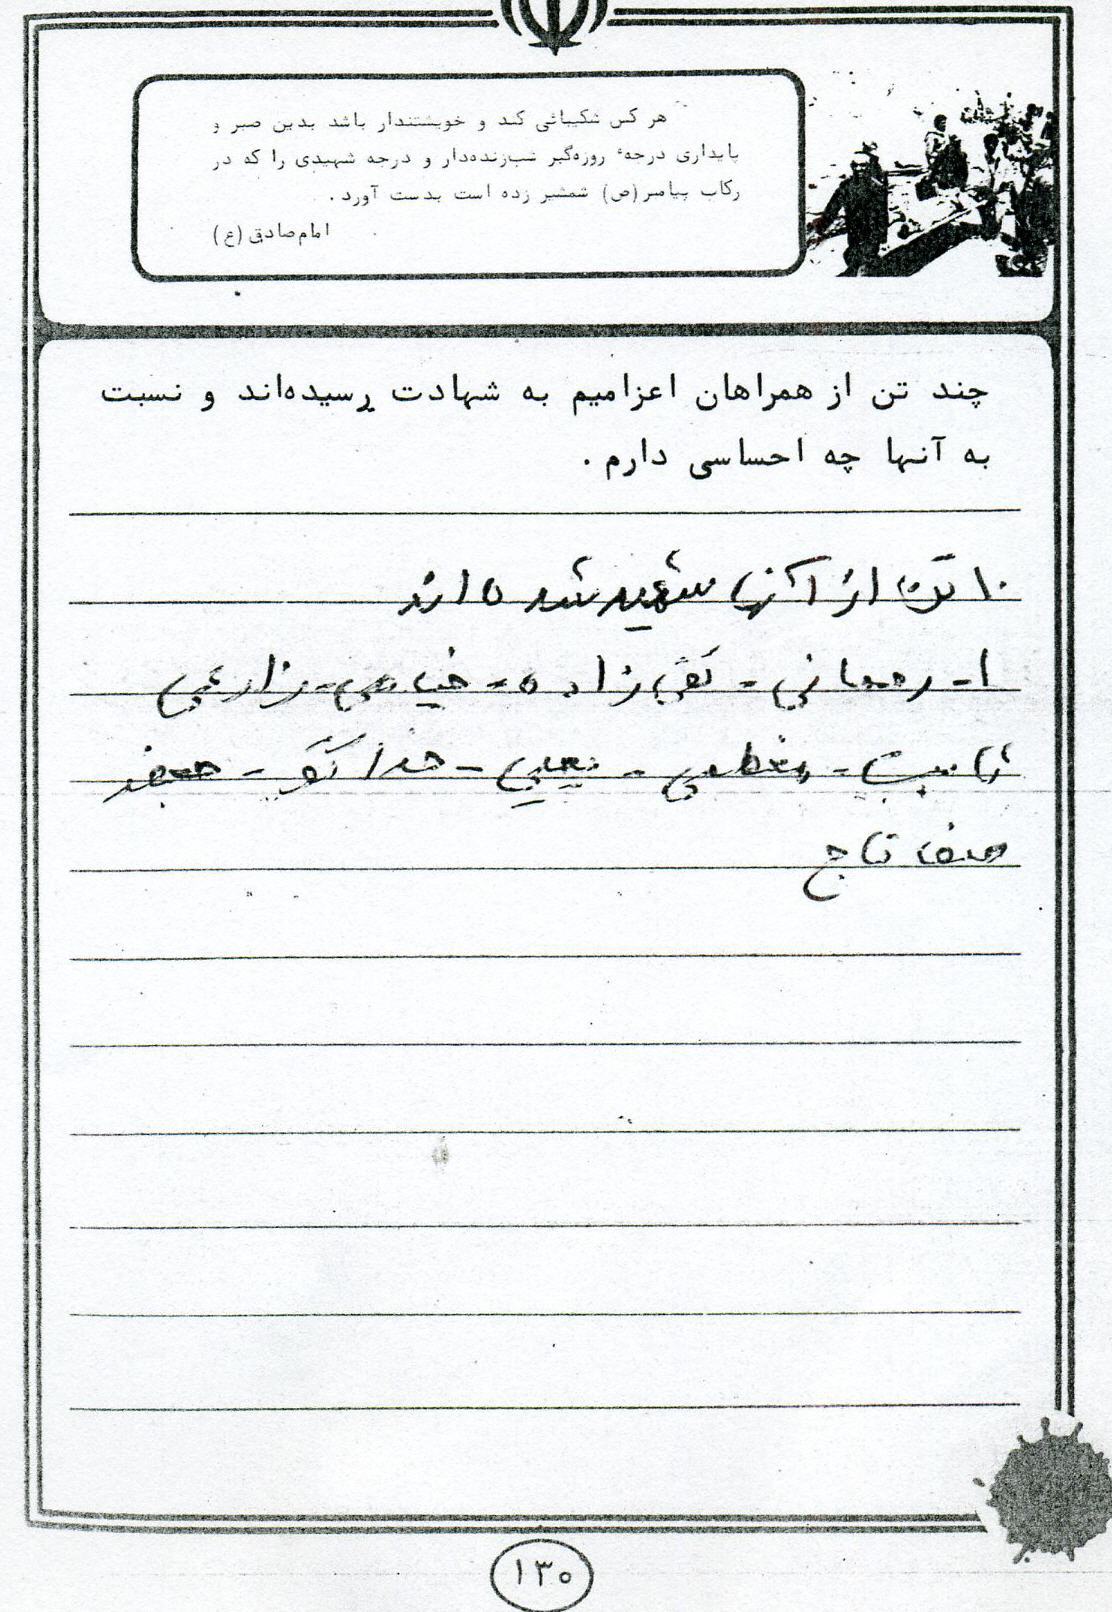 هر کس شکیبائی کند و خویشتندار باشد بدین صبر و
پایداری درجهٔ روزه‌گیر شب‌زنده‌دار و درجه شهیدی را که در
رکاب پیامبر (ص) شمشیر زده است بدست آورد .
امام صادق (ع)
چند تن از همراهان اعزامیم به شهادت رسیده‌اند و نسبت
به آنها چه احساسی دارم .
۱۰ تن از آنها شهید شده اند
۱- رحمانی - تقی زاده - خیامی - زارعی
ثابت - - یحیی - -
تاج
۱۳۰